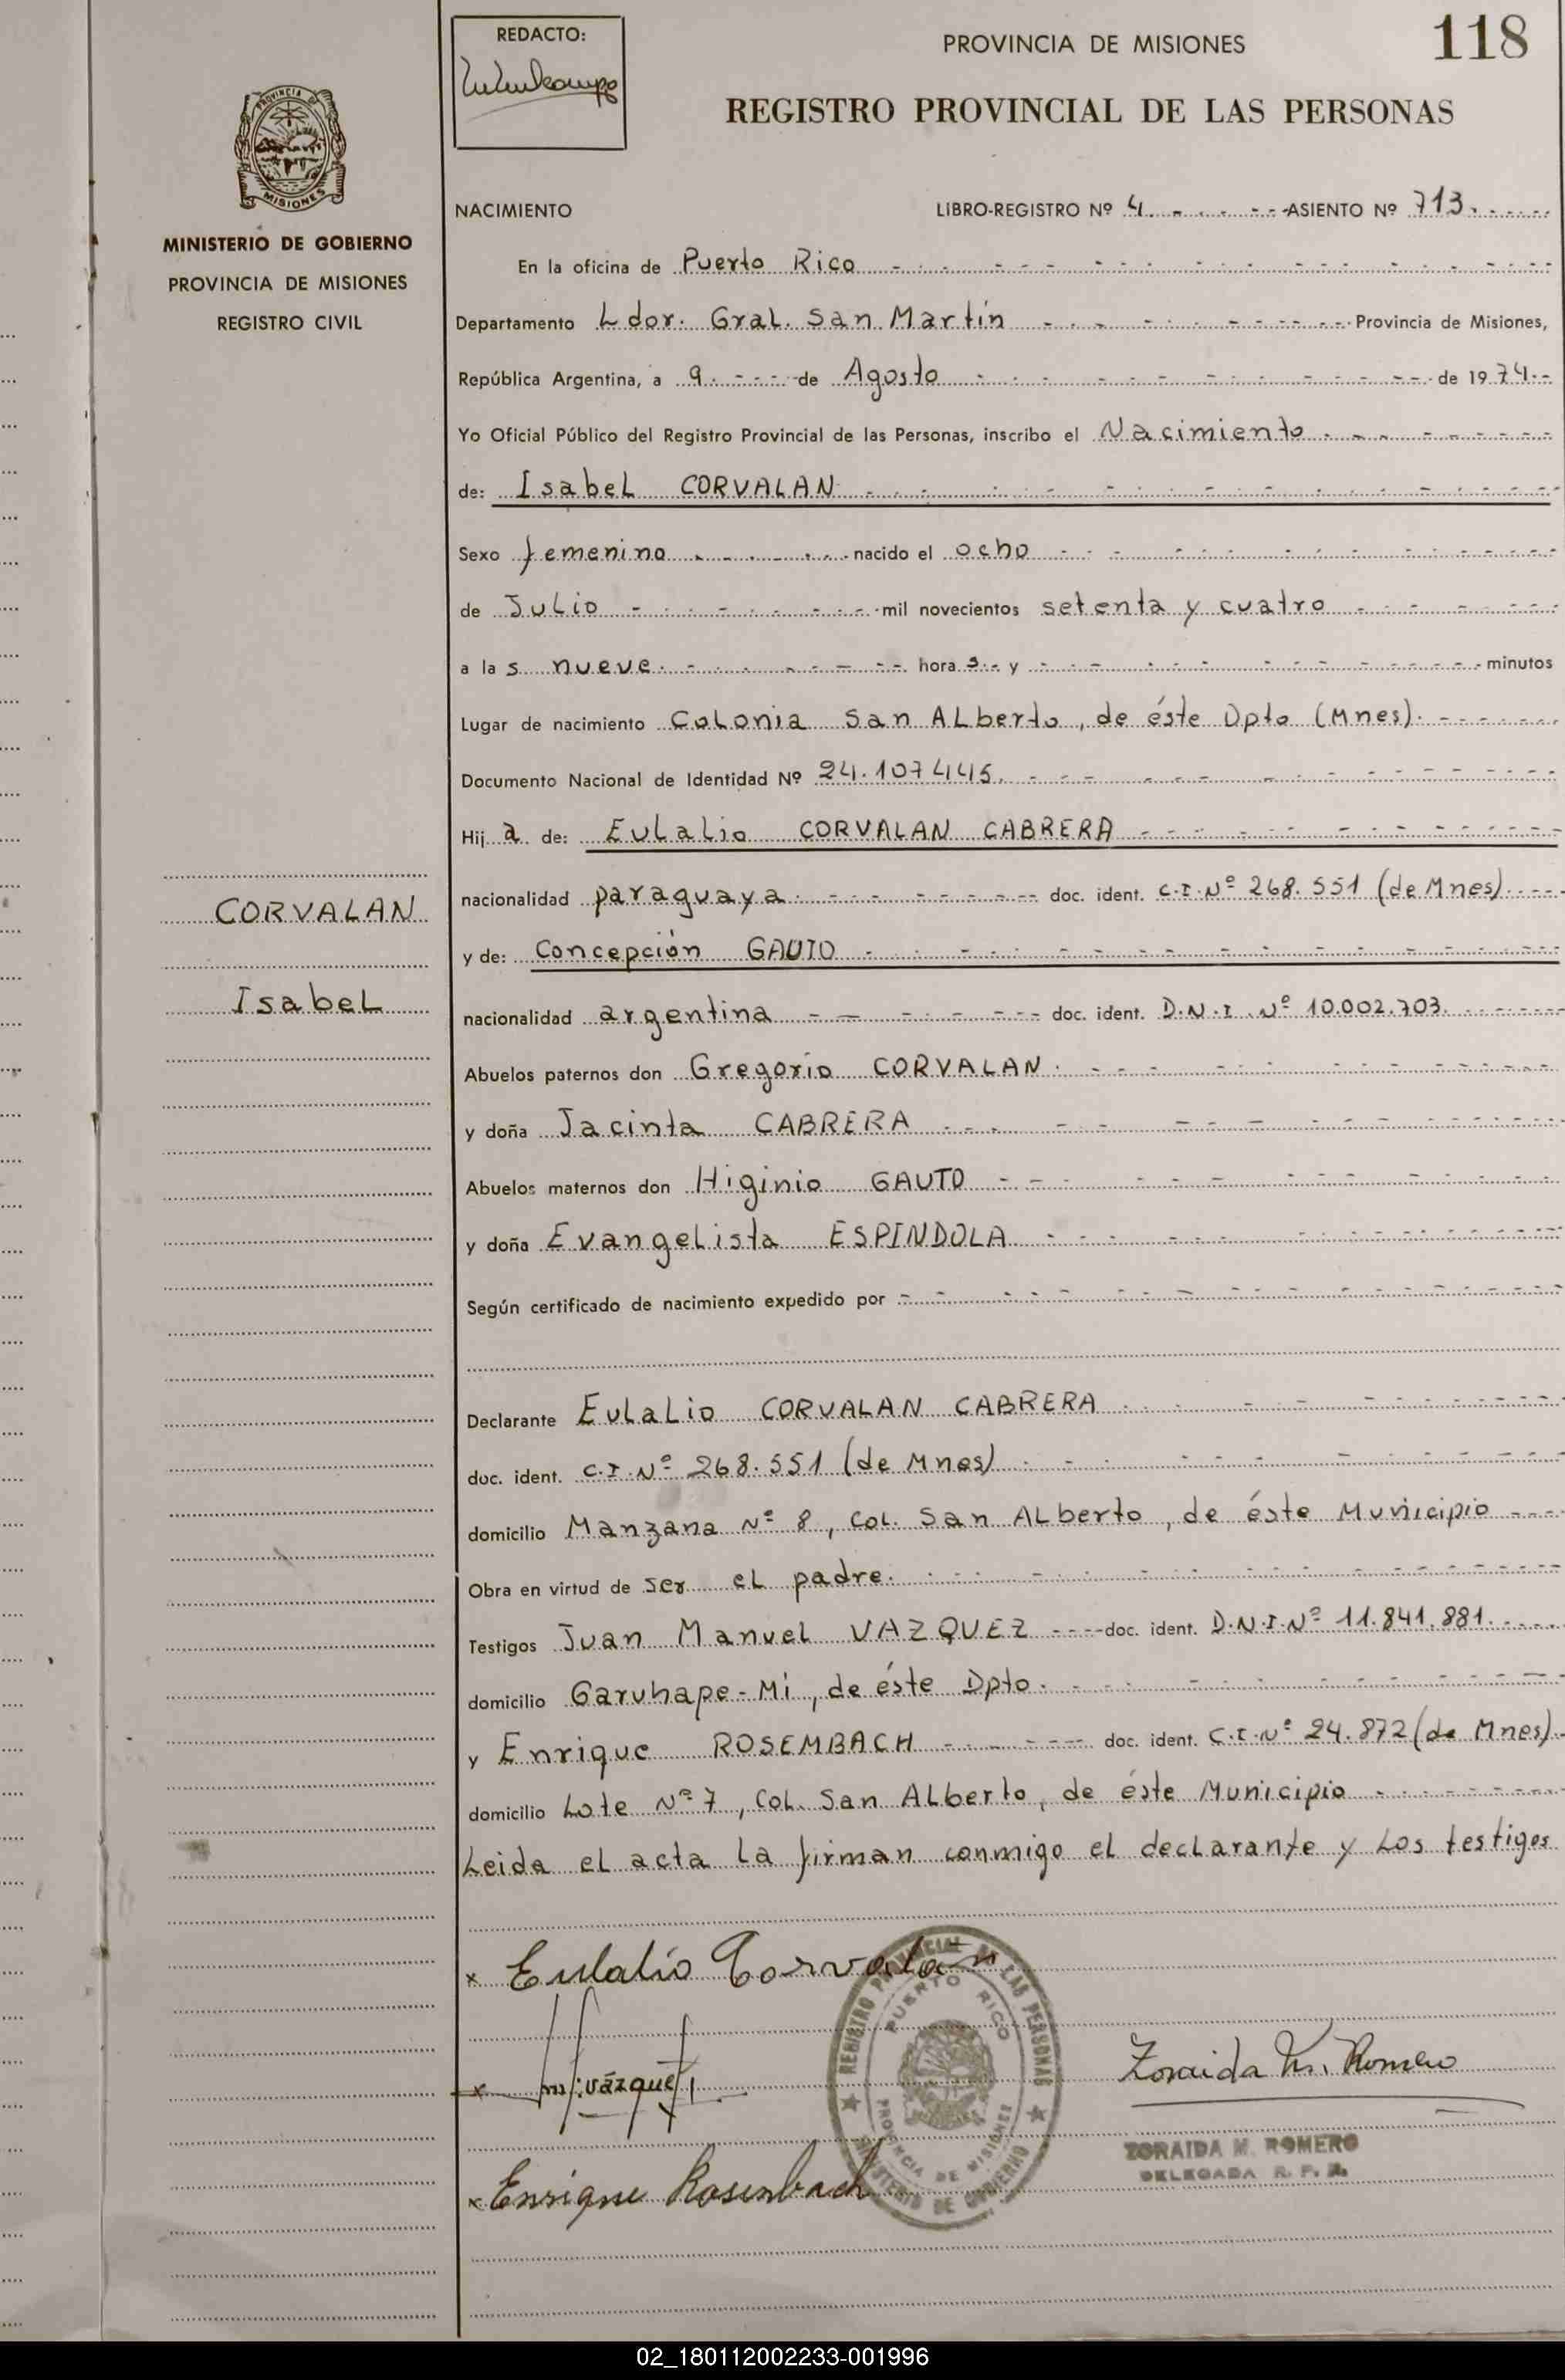 118
REDACTO:
PROVINCIA DE MISIONES
REGISTRO PROVINCIAL DE LAS PERSONAS
PROVINCIA DE
MISIONES
MINISTERIO DE GOBIERNO
PROVINCIA DE MISIONES
REGISTRO CIVIL
NACIMIENTO LIBRO-REGISTRO Nº 4 ASIENTO Nº 713
En la oficina de Puerto Rico
Departamento Ldor. Gral. San Martín Provincia de Misiones,
República Argentina, a 9 de Agosto de 1974
Yo Oficial Público del Registro Provincial de las Personas, inscribo el Nacimiento
de: Isabel CORVALAN
Sexo femenino nacido el ocho
de Julio mil novecientos setenta y cuatro
a las nueve horas y minutos
Lugar de nacimiento Colonia San Alberto, de éste Dpto (Mnes).
Documento Nacional de Identidad Nº 24.107445.
Hija de: Eulalio CORVALAN CABRERA
nacionalidad paraguaya doc. ident. C.I.Nº 268.551 (de Mnes)
y de: Concepción GAUTO
nacionalidad argentina doc. ident. D.N.I. Nº 10.002.703.
Abuelos paternos don Gregorio CORVALAN
y doña Jacinta CABRERA
Abuelos maternos don Higinio GAUTO
y doña Evangelista ESPINDOLA
Según certificado de nacimiento expedido por
Declarante Eulalio CORVALAN CABRERA
doc. ident. C.I.Nº 268.551 (de Mnes)
domicilio Manzana Nº 8, Col. San Alberto, de éste Municipio
Obra en virtud de ser el padre.
Testigos Juan Manuel VAZQUEZ doc. ident. D.N.I.Nº 11.841.881.
domicilio Garuhape-Mi, de éste Dpto.
y Enrique ROSEMBACH doc. ident. C.I.Nº 24.872 (de Mnes)
domicilio Lote Nº 7, Col. San Alberto, de éste Municipio
Leida el acta la firman conmigo el declarante y los testigos
CORVALAN
Isabel
x Eulalio Corvalan
x m. vázquez
x Enrique Rosenbach
REGISTRO PROVINCIAL DE LAS PERSONAS
PUERTO RICO
PROVINCIA DE MISIONES
MINISTERIO DE GOBIERNO
Zoraida M. Romero
ZORAIDA M. ROMERO
DELEGADA R. P. P.
02_180112002233-001996